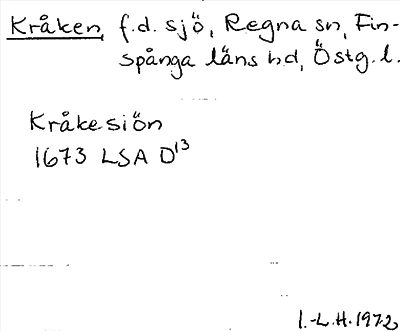 Kråken, f.d. sjö, Regna sn, Fin-
spånga läns hd, Östg.l.
Kråkesiön
1673 LSA D13
I.-L.H. 1972